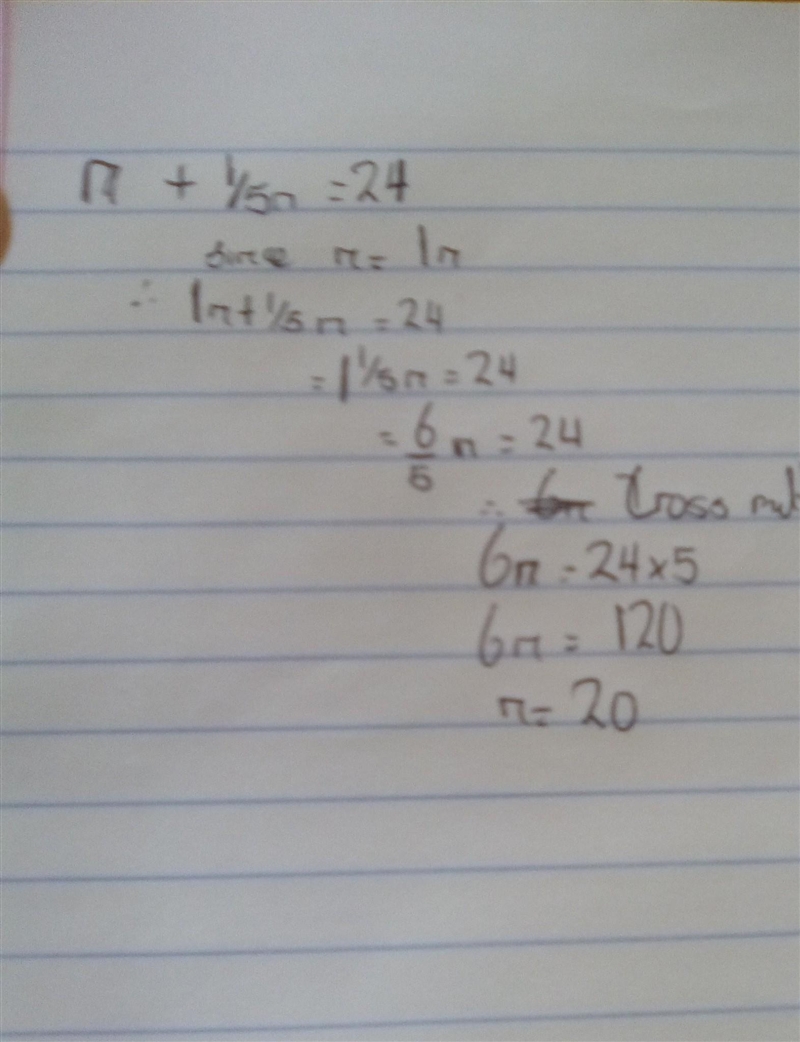 n + 1/5n = 24
since n = 1n
∴ 1n + 1/5 n = 24
= 1 1/5 n = 24
= 6/5 n = 24
∴ 6n Cross mul
6n = 24 x 5
6n = 120
n = 20